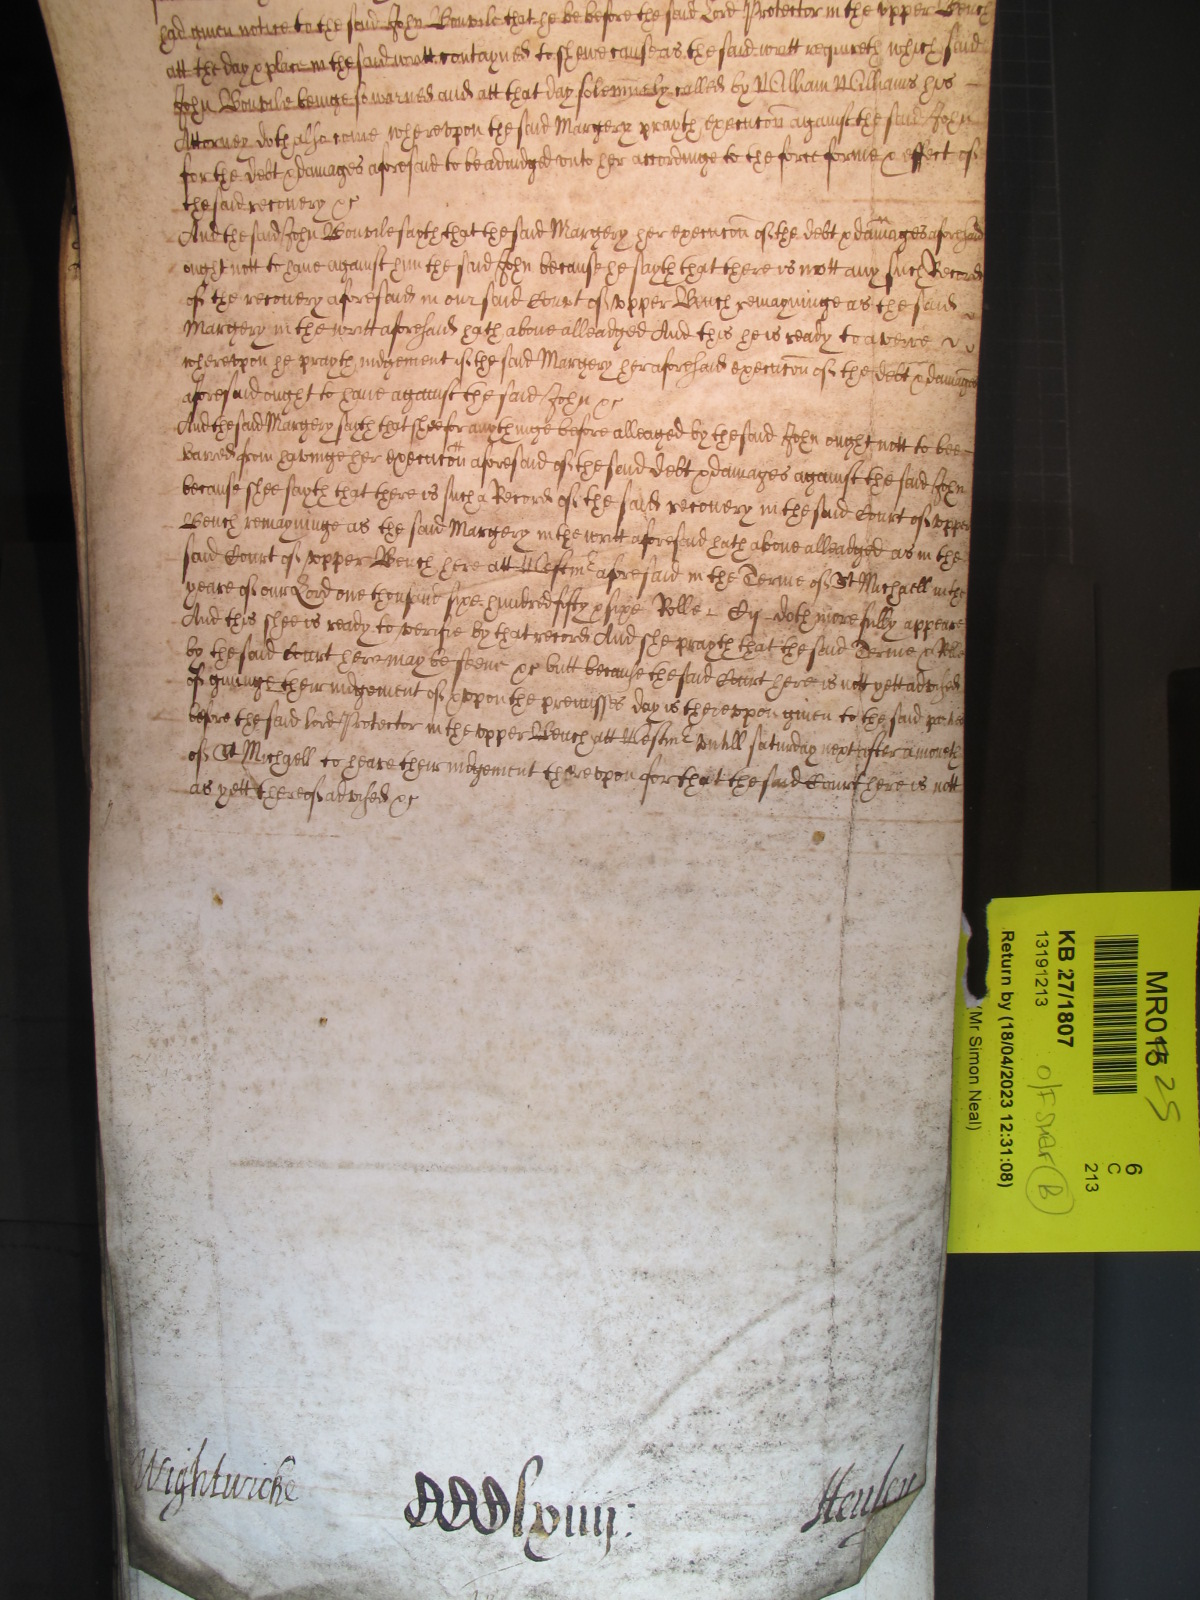 had given notice to the said John Bonvile that he be before the said Lord Protector in the upper Bench
att the day & place in the said writt contayned to shewe cause as the said writt requireth which said
John Bonvile beinge so warned and att that day solemnely called by William Williams his
Attorney doth also come whereupon the said Margery prayth execucon against the said John
for the debt & damages aforesaid to be adiudged unto her accordinge to the force forme & effect of
the said recovery &c
And the said John Bonvile sayth that the said Margery her execucon of the debt & damages aforesaid
ought nott to have against him the said John because he sayth that there is nott any such Record
of the recovery aforesaid in our said Court of upper Bench remayninge as the said
Margery in the writt aforesaid hath above alleadged And this he is ready to averre
whereupon he prayth iudgement if the said Margery her aforesaid execucon of the debt & damages
aforesaid ought to have against the said John &c
And the said Margery sayth that shee for any thinge before alleaged by the said John ought nott to bee
barred from havinge her execucon aforesaid of the said debt & damages against the said John
because shee sayth that there is such a Record of the said recovery in the said Court of upper
Bench remayninge as the said Margery in the writt aforesaid hath above alleadged as in the
said Court of upper Bench here att Westmr aforesaid in the Terme of St Michaell in the
yeare of our Lord one thousand sixe hundred fifty & sixe Rolle doth more fully appeare
And this shee is ready to verifie by that record And she prayth that the said Terme & Rolle
by the said Court here may be seene &c butt because the said Court here is nott yett advised
of givinge their iudgement of & upon the premisses day is thereupon given to the said parties
before the said Lord Protector in the upper Bench att Westmr untill saturday next after a moneth
of St Michaell to heare their iudgement thereupon for that the said Court here is nott
as yett thereof advised &c
Wightwicke
lxiiii:
Henley
MR01
25
KB 27/1807
13191213
Return by (18/04/2023 12:31:08)
(Mr Simon Neal)
O/F
B
6
C
213